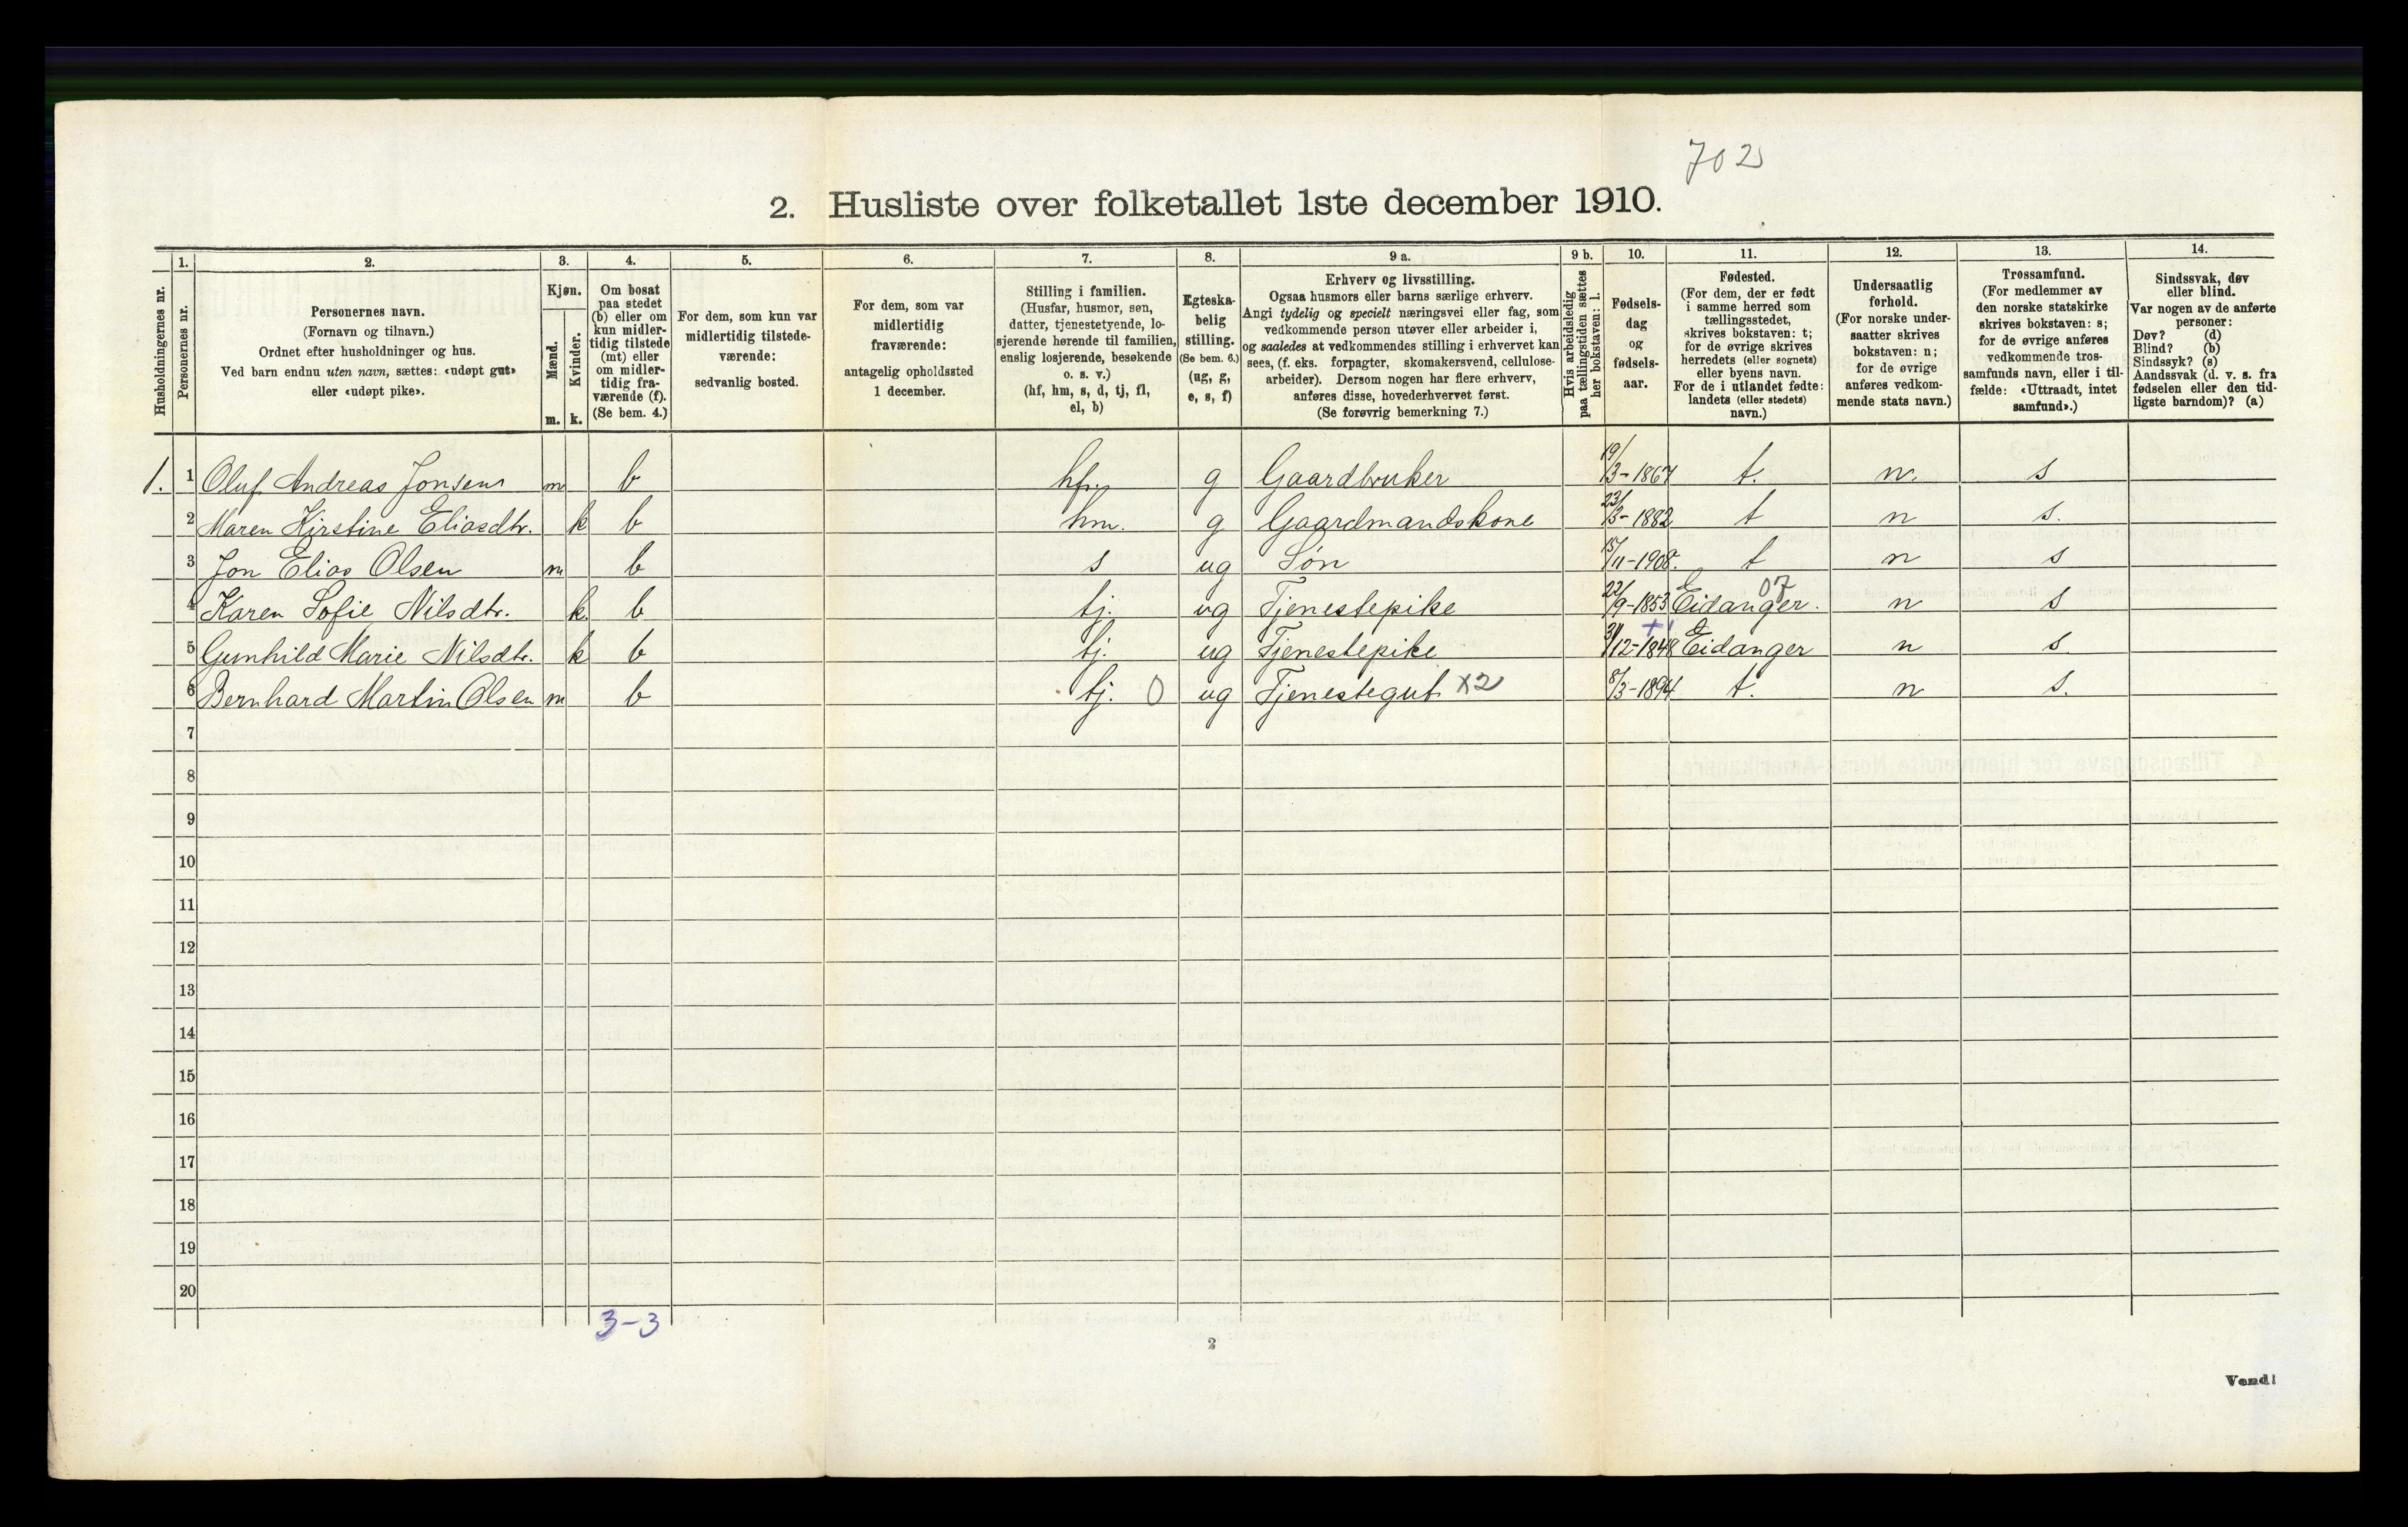 702
2. Husliste over folketallet 1ste december 1910.
Husholdningernes nr.
1. Personernes nr.
2. Personernes navn.
(Fornavn og tilnavn.)
Ordnet efter husholdninger og hus.
Ved barn endnu uten navn, sættes: «udøpt gut»
eller «udøpt pike».
3. Kjøn.
Mænd. m.
Kvinder. k.
4. Om bosat
paa stedet
(b) eller om
kun midler-
tidig tilstede
(mt) eller
om midler-
tidig fra-
værende (f).
(Se bem. 4.)
5. For dem, som kun var
midlertidig tilstede-
værende:
sedvanlig bosted.
6. For dem, som var
midlertidig
fraværende:
antagelig opholdssted
1 december.
7. Stilling i familien.
(Husfar, husmor, søn,
datter, tjenestetyende, lo-
sjerende hørende til familien,
enslig losjerende, besøkende
o. s. v.)
(hf, hm, s, d, tj, fl,
el, b)
8. Egteska-
belig
stilling.
(Se bem. 6.)
(ug, g,
e, s, f)
9 a. Erhverv og livsstilling.
Ogsaa husmors eller barns særlige erhverv.
Angi tydelig og specielt næringsvei eller fag, som
vedkommende person utøver eller arbeider i,
og saaledes at vedkommendes stilling i erhvervet kan
sees, (f. eks. forpagter, skomakersvend, cellulose-
arbeider). Dersom nogen har flere erhverv,
anføres disse, hovederhvervet først.
(Se forøvrig bemerkning 7.)
9 b. Hvis arbeidsledig
paa tællingstiden sættes
her bokstaven: l.
10. Fødsels-
dag
og
fødsels-
aar.
11. Fødested.
(For dem, der er født
i samme herred som
tællingsstedet,
skrives bokstaven: t;
for de øvrige skrives
herredets (eller sognets)
eller byens navn.
For de i utlandet fødte:
landets (eller stedets)
navn.)
12. Undersaatlig
forhold.
(For norske under-
saatter skrives
bokstaven: n;
for de øvrige
anføres vedkom-
mende stats navn.)
13. Trossamfund.
(For medlemmer av
den norske statskirke
skrives bokstaven: s;
for de øvrige anføres
vedkommende tros-
samfunds navn, eller i til-
fælde: «Uttraadt, intet
samfund».)
14. Sindssvak, døv
eller blind.
Var nogen av de anførte
personer:
Døv? (d)
Blind? (b)
Sindssyk? (s)
Aandssvak (d. v. s. fra
fødselen eller den tid-
ligste barndom)? (a)
1. 1 Oluf Andreas Jonsen m b hf. g Gaardbruker 19/3-1867 t. n. s
2 Maren Kirstine Eliasdtr. k b hm. g Gaardmandskone 23/3-1882 t n s.
3 Jon Elias Olsen m b s ug Søn 15/11-1908. t n s
4 Karen Sofie Nilsdtr. k. b tj. ug Tjenestepike 22/9-1853 Eidanger. 07 n s
5 Gunhild Marie Nilsdtr. k b tj. ug Tjenestepike 31/12-1848 Eidanger n s.
6 Bernhard Martin Olsen m b tj. 0 ug Tjenestegut X2 8/3-1894 t. n s.
7
8
9
10
11
12
13
14
15
16
17
18
19
20
3-3
2
Vend!